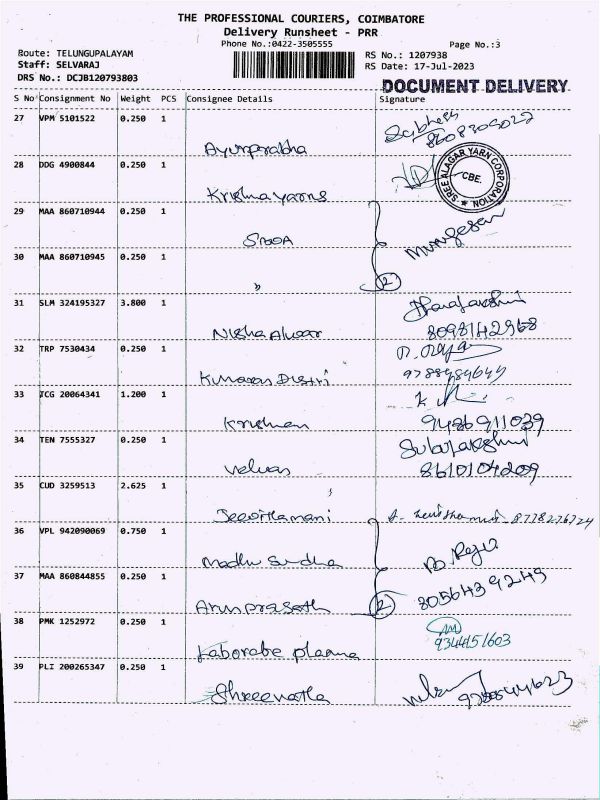 THE PROFESSIONAL COURIERS, COIMBATORE
Delivery Runsheet - PRR
Phone No.:0422-3505555
Page No.:3
Route: TELUNGUPALAYAM
RS No.: 1207938
Staff: SELVARAJ
RS Date: 17-Jul-2023
DRS No.: DCJB120793803
DOCUMENT DELIVERY
S No Consignment No Weight PCS Consignee Details Signature
27 VPM 5101522 0.250 1
Ayurprabha
8608309027
28 DDG 4900844 0.250 1
Krishna yarns
SREE ALAGAR YARN CORPORATION
CBE.
29 MAA 860710944 0.250 1
Murugesan
30 MAA 860710945 0.250 1
"
2
31 SLM 324195327 3.800 1
Nisha Alwar
8098142968
32 TRP 7530434 0.250 1
Kumaran Distri
33 TCG 20064341 1.200 1
Krishnan
9486911039
34 TEN 7555327 0.250 1
Velvas
Subalakshmi
8610104209
35 CUD 3259513 2.625 1
Jeevithamani
8778276724
36 VPL 942090069 0.750 1
Madhu Sudha
37 MAA 860844855 0.250 1
Arun prasath
2
8056439249
38 PMK 1252972 0.250 1
Laborate plasma
9344151603
39 PLI 200265347 0.250 1
Shreenatha